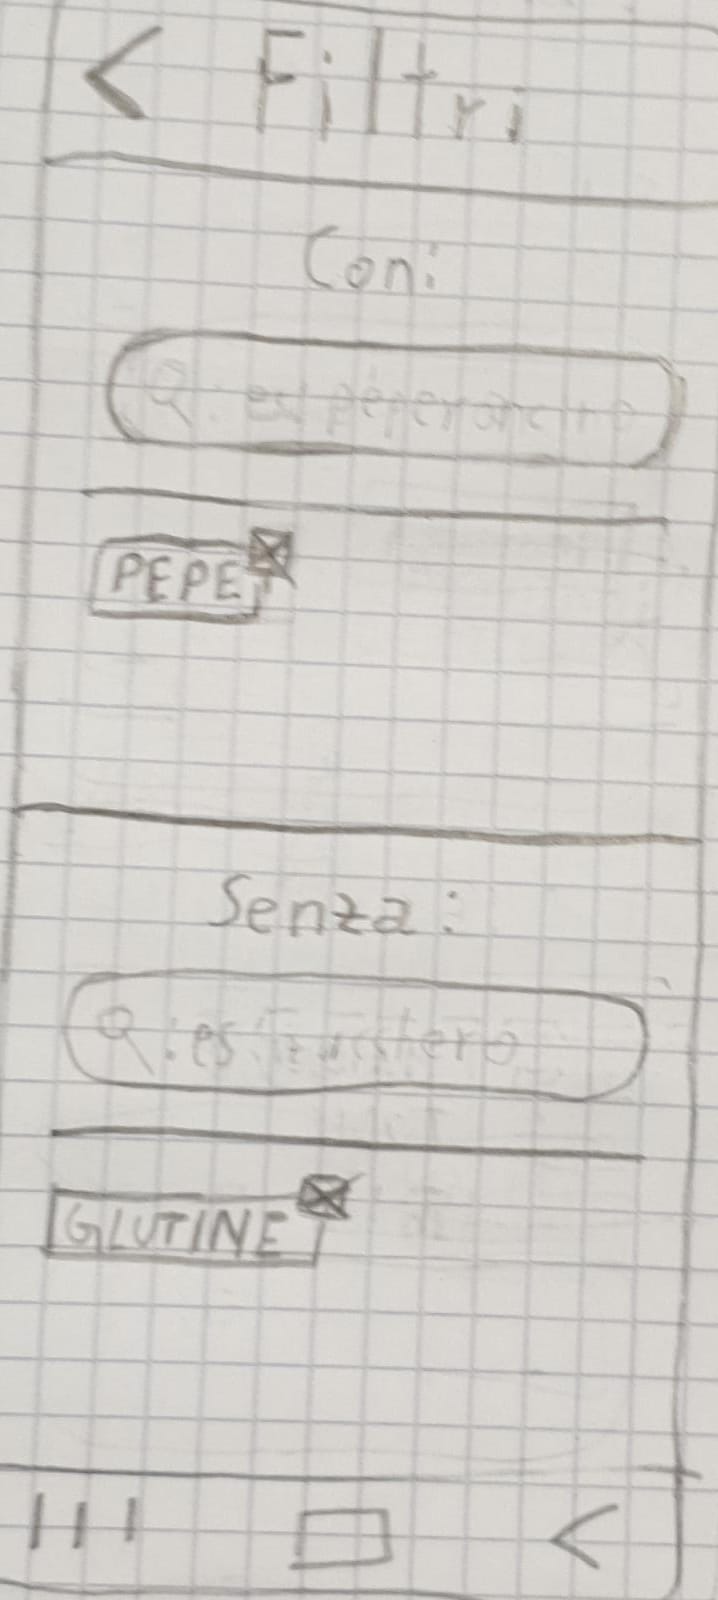 < Filtri
Con:
es peperoncino
PEPE
Senza:
es: zucchero
GLUTINE